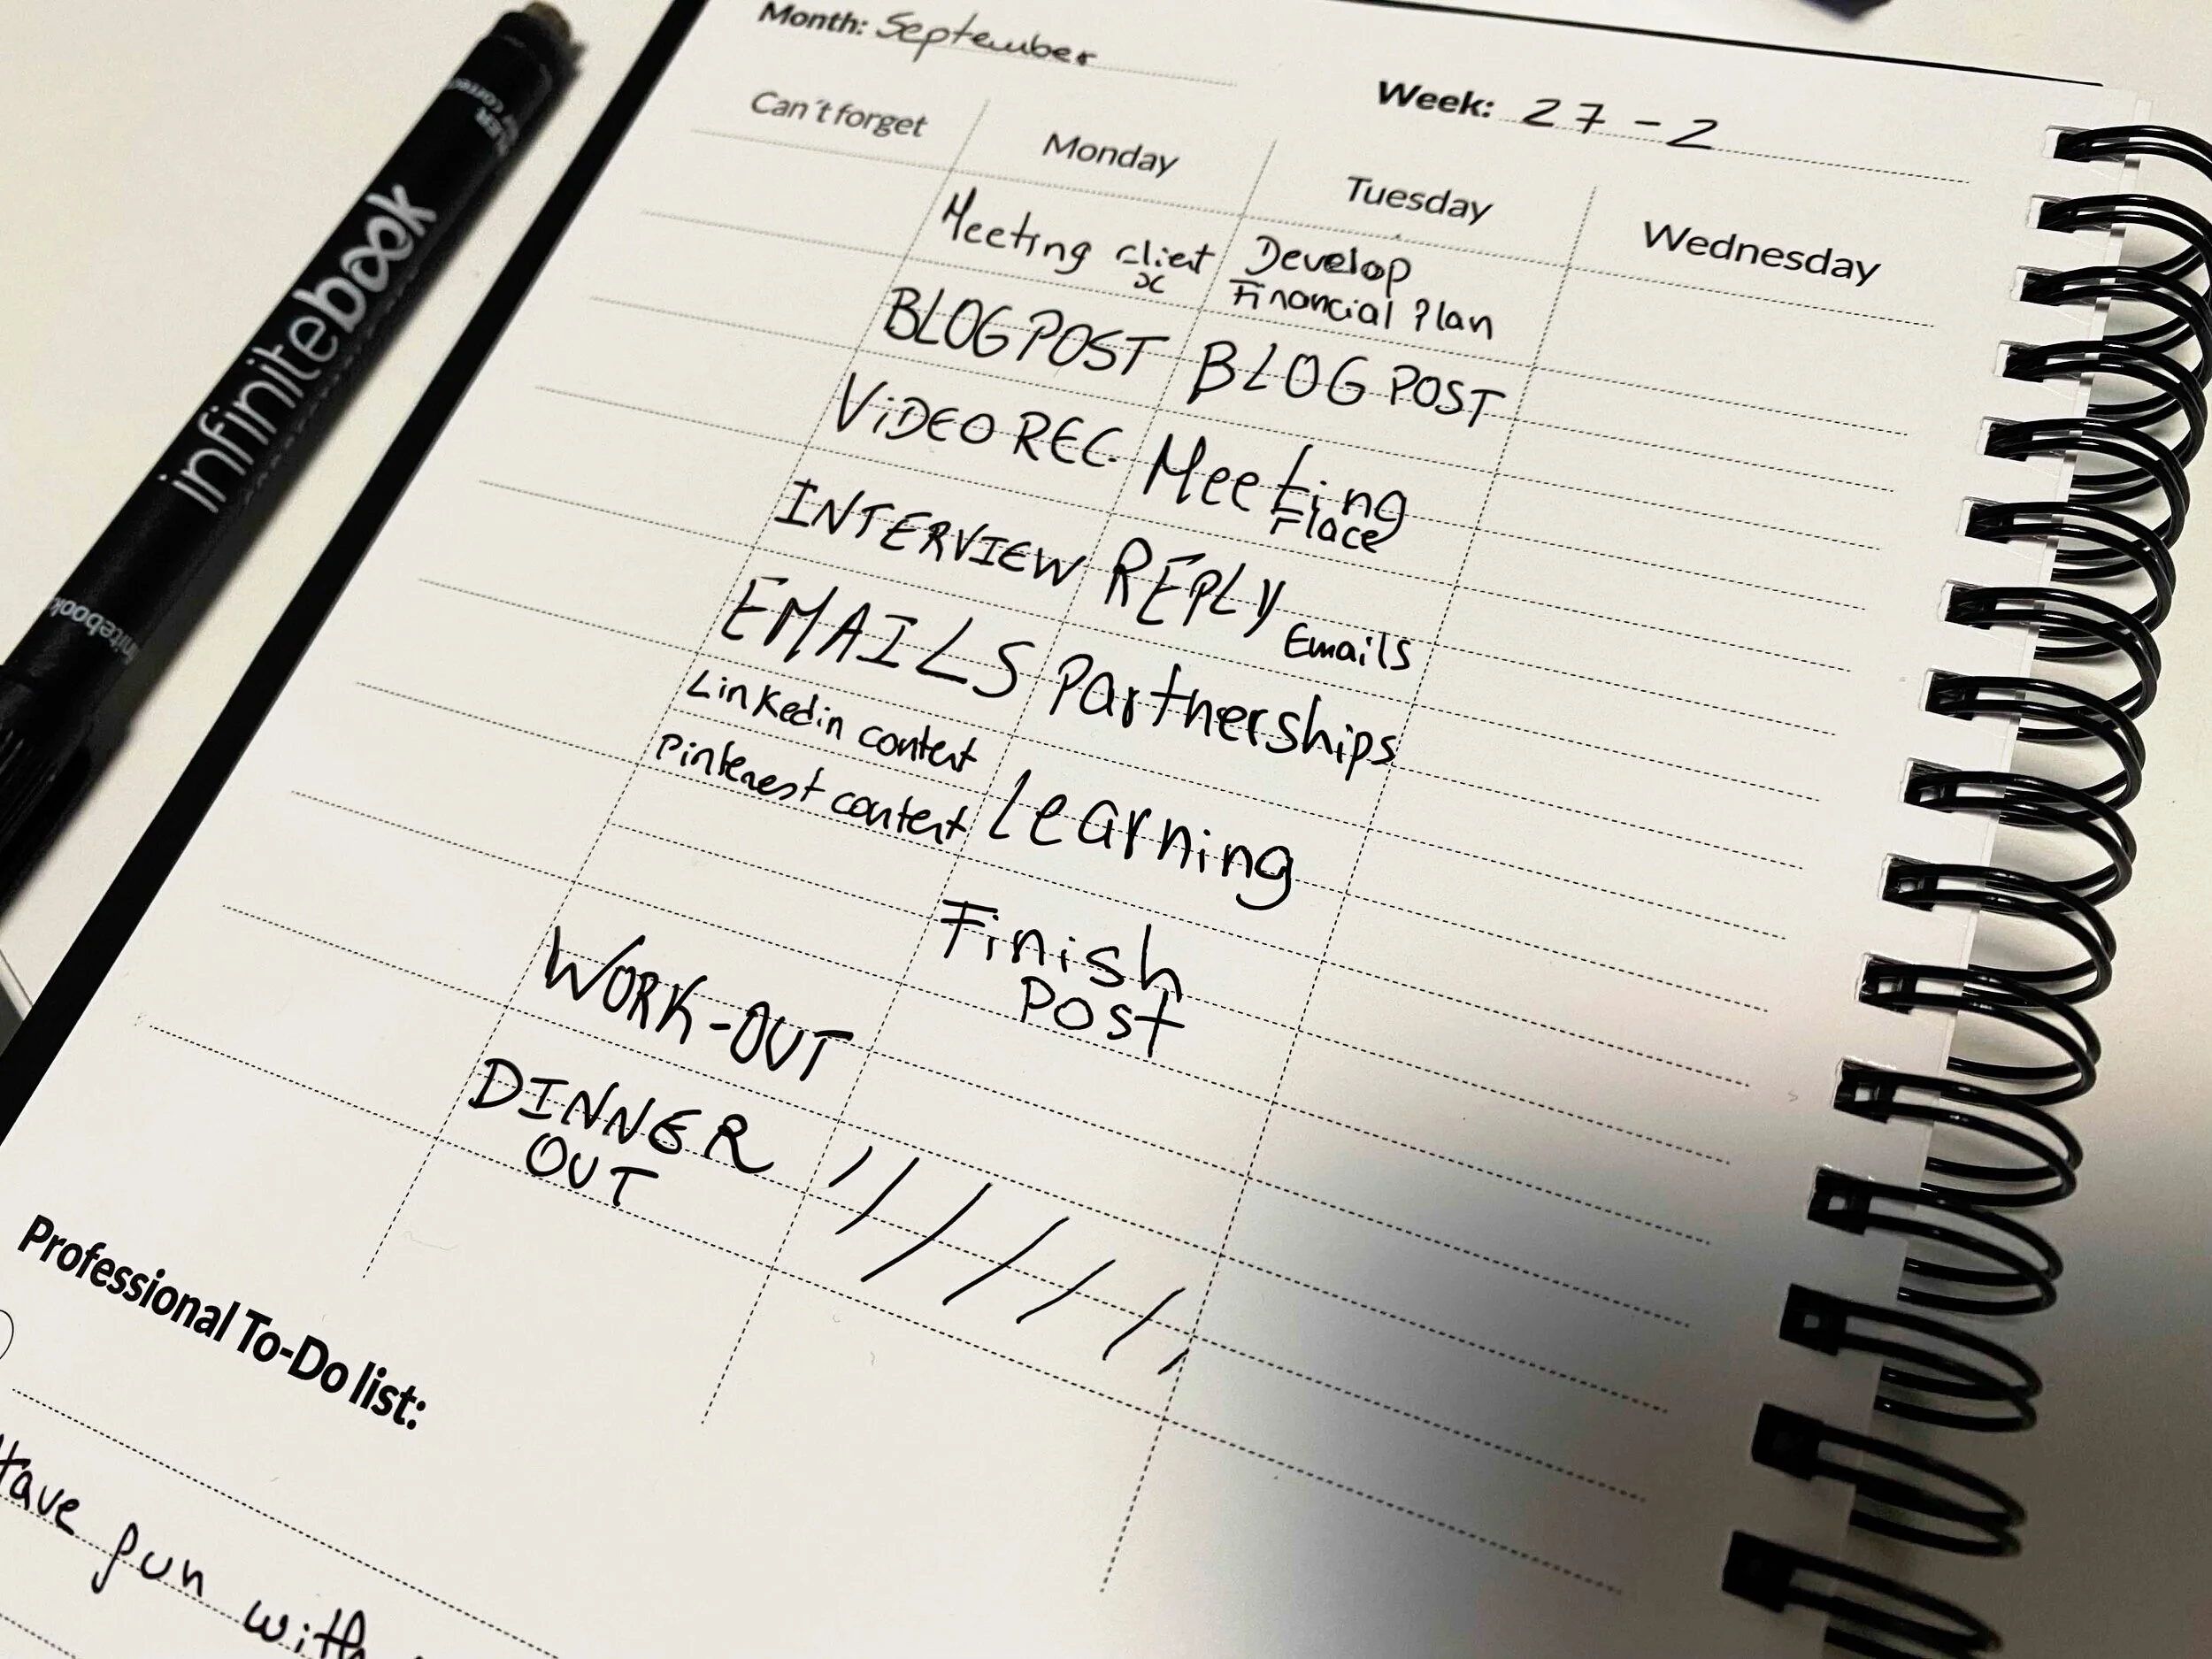 Month: September
Week: 27 - 2
Can't forget
Monday
Tuesday
Wednesday
Meeting client
x
BLOG POST
VIDEO REC.
INTERVIEW
EMAILS
Linkedin content
Pinterest content
WORK-OUT
DINNER
OUT
Develop
Financial Plan
BLOG POST
Meeting
Flace
REPLY
Emails
Partnerships
Learning
Finish
Post
Professional To-Do list:
Have fun with
infinitebook